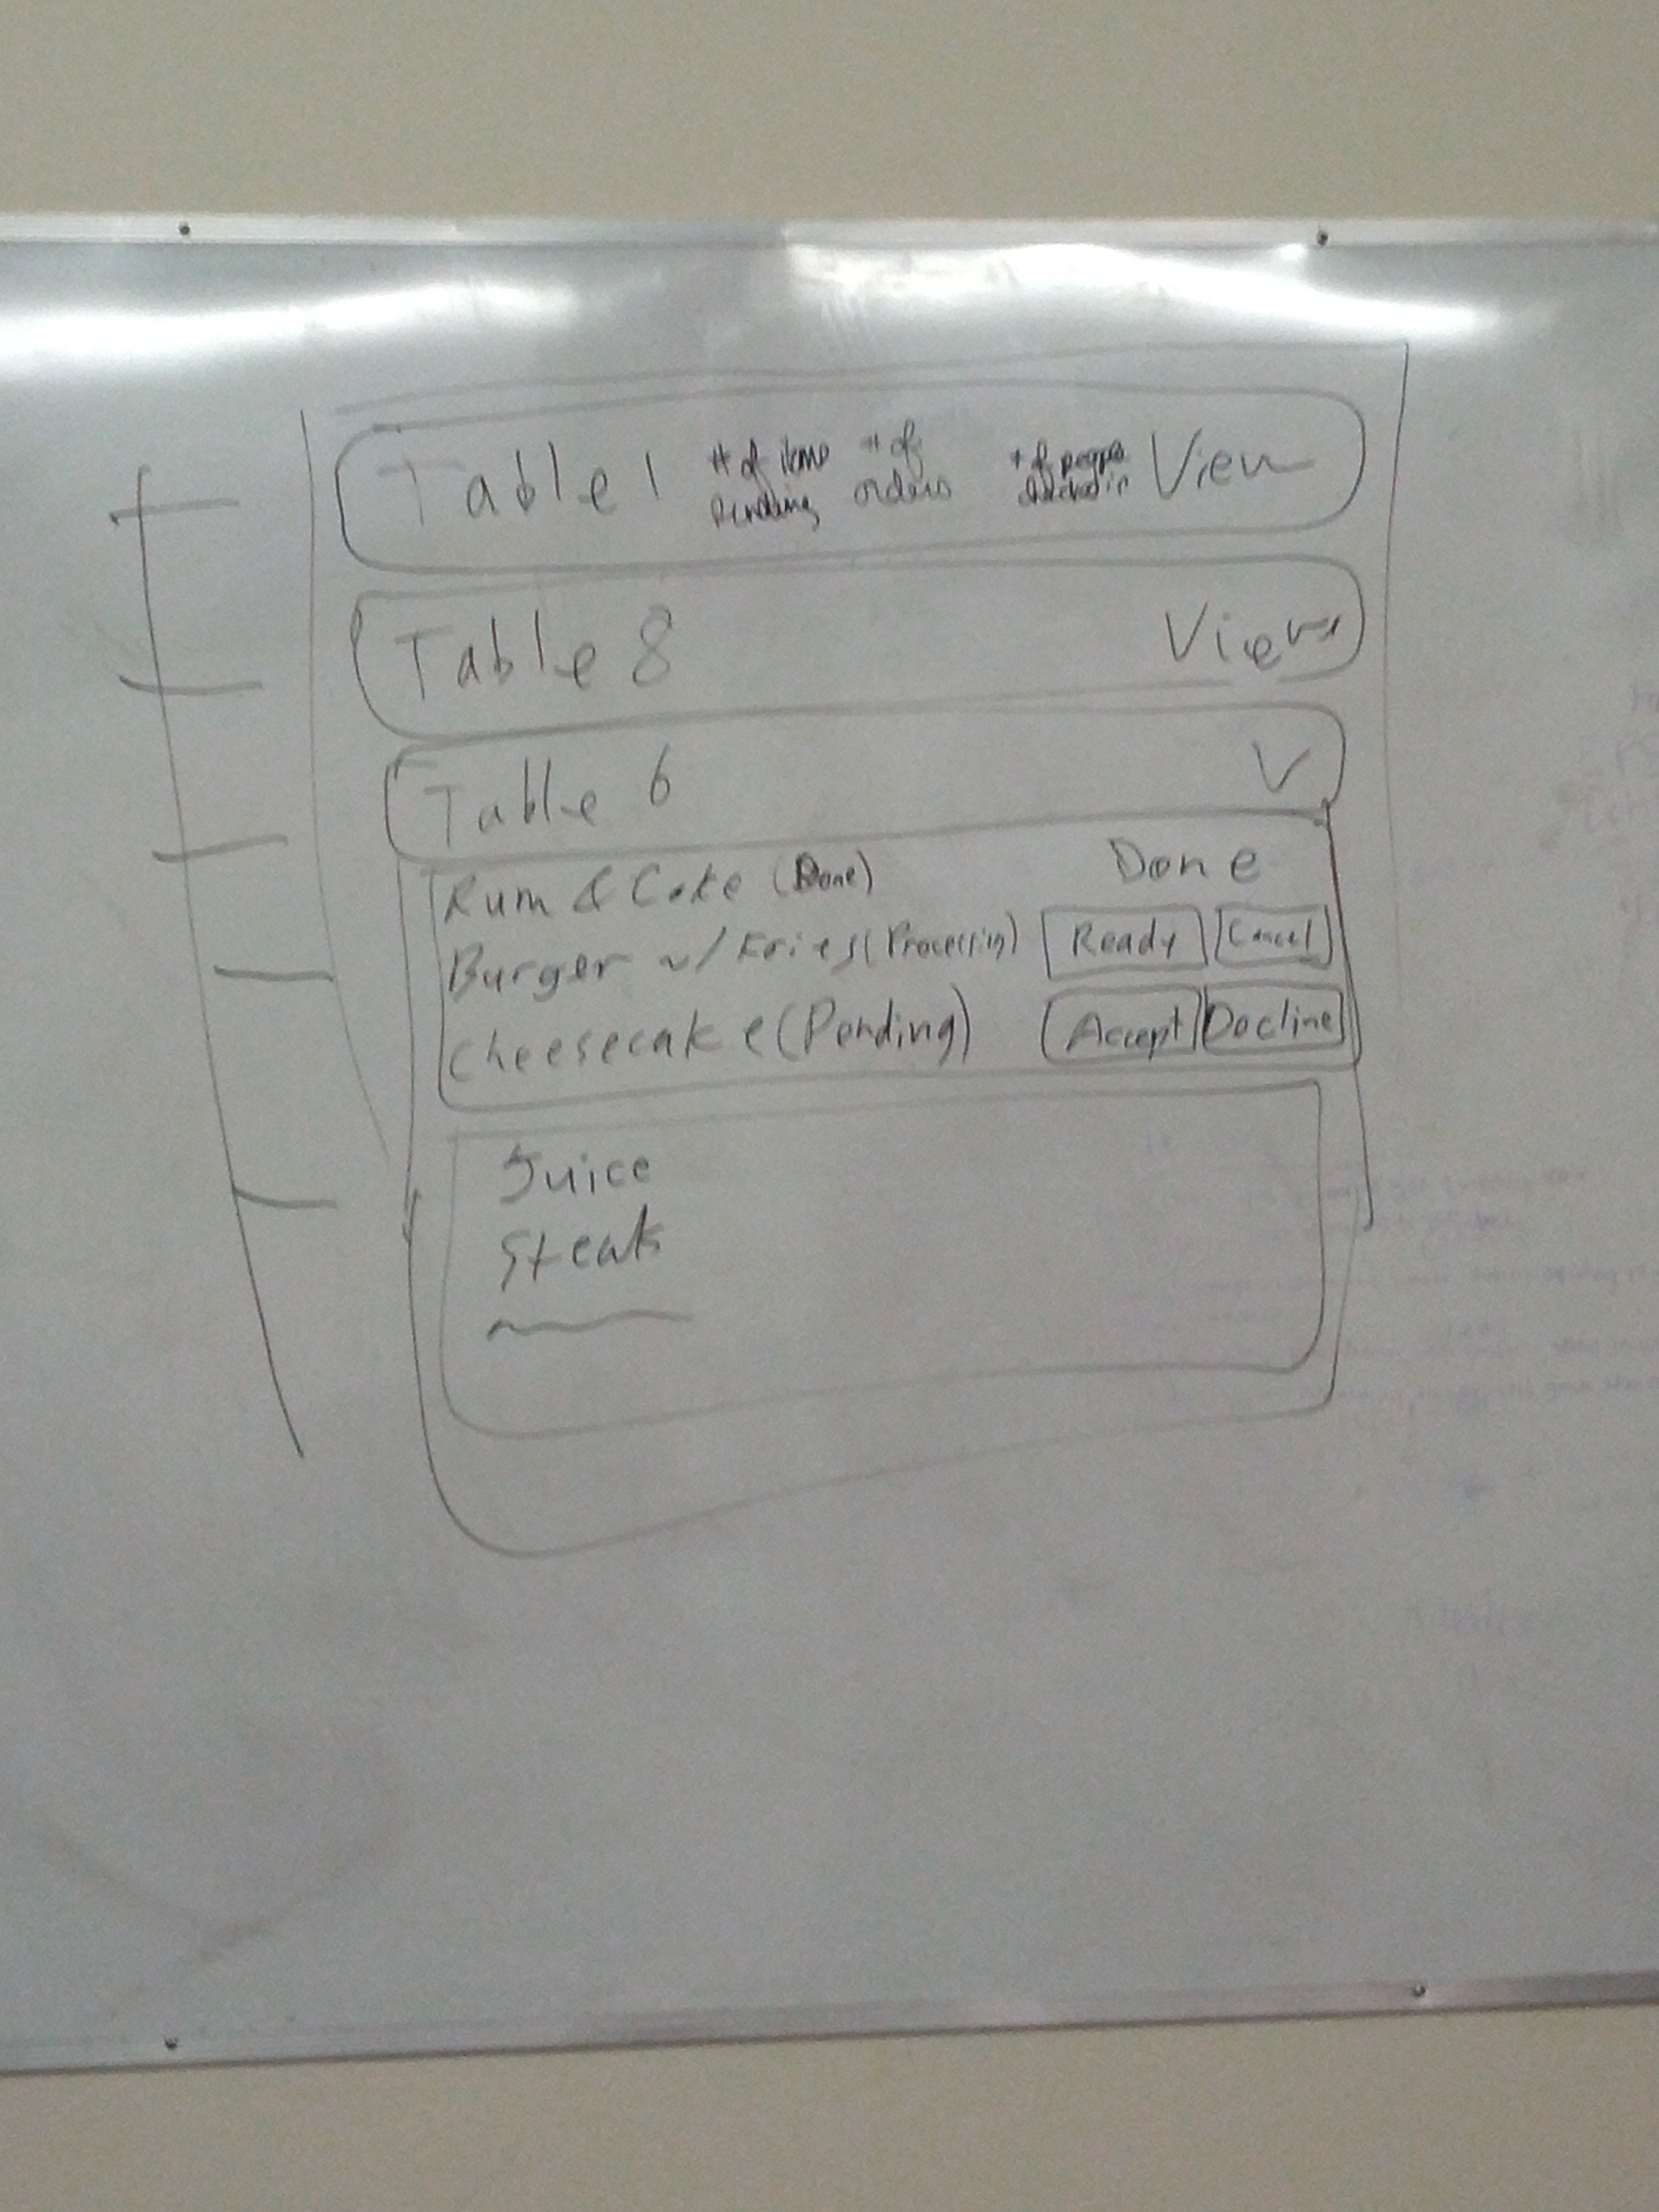 Table 1 # of items pending # of orders # of people checked in View
Table 8 View
Table 6 V
Rum & Coke (Done) Done
Burger w/ Fries (Processing) Ready Cancel
Cheesecake (Pending) Accept Decline
Juice
Steak